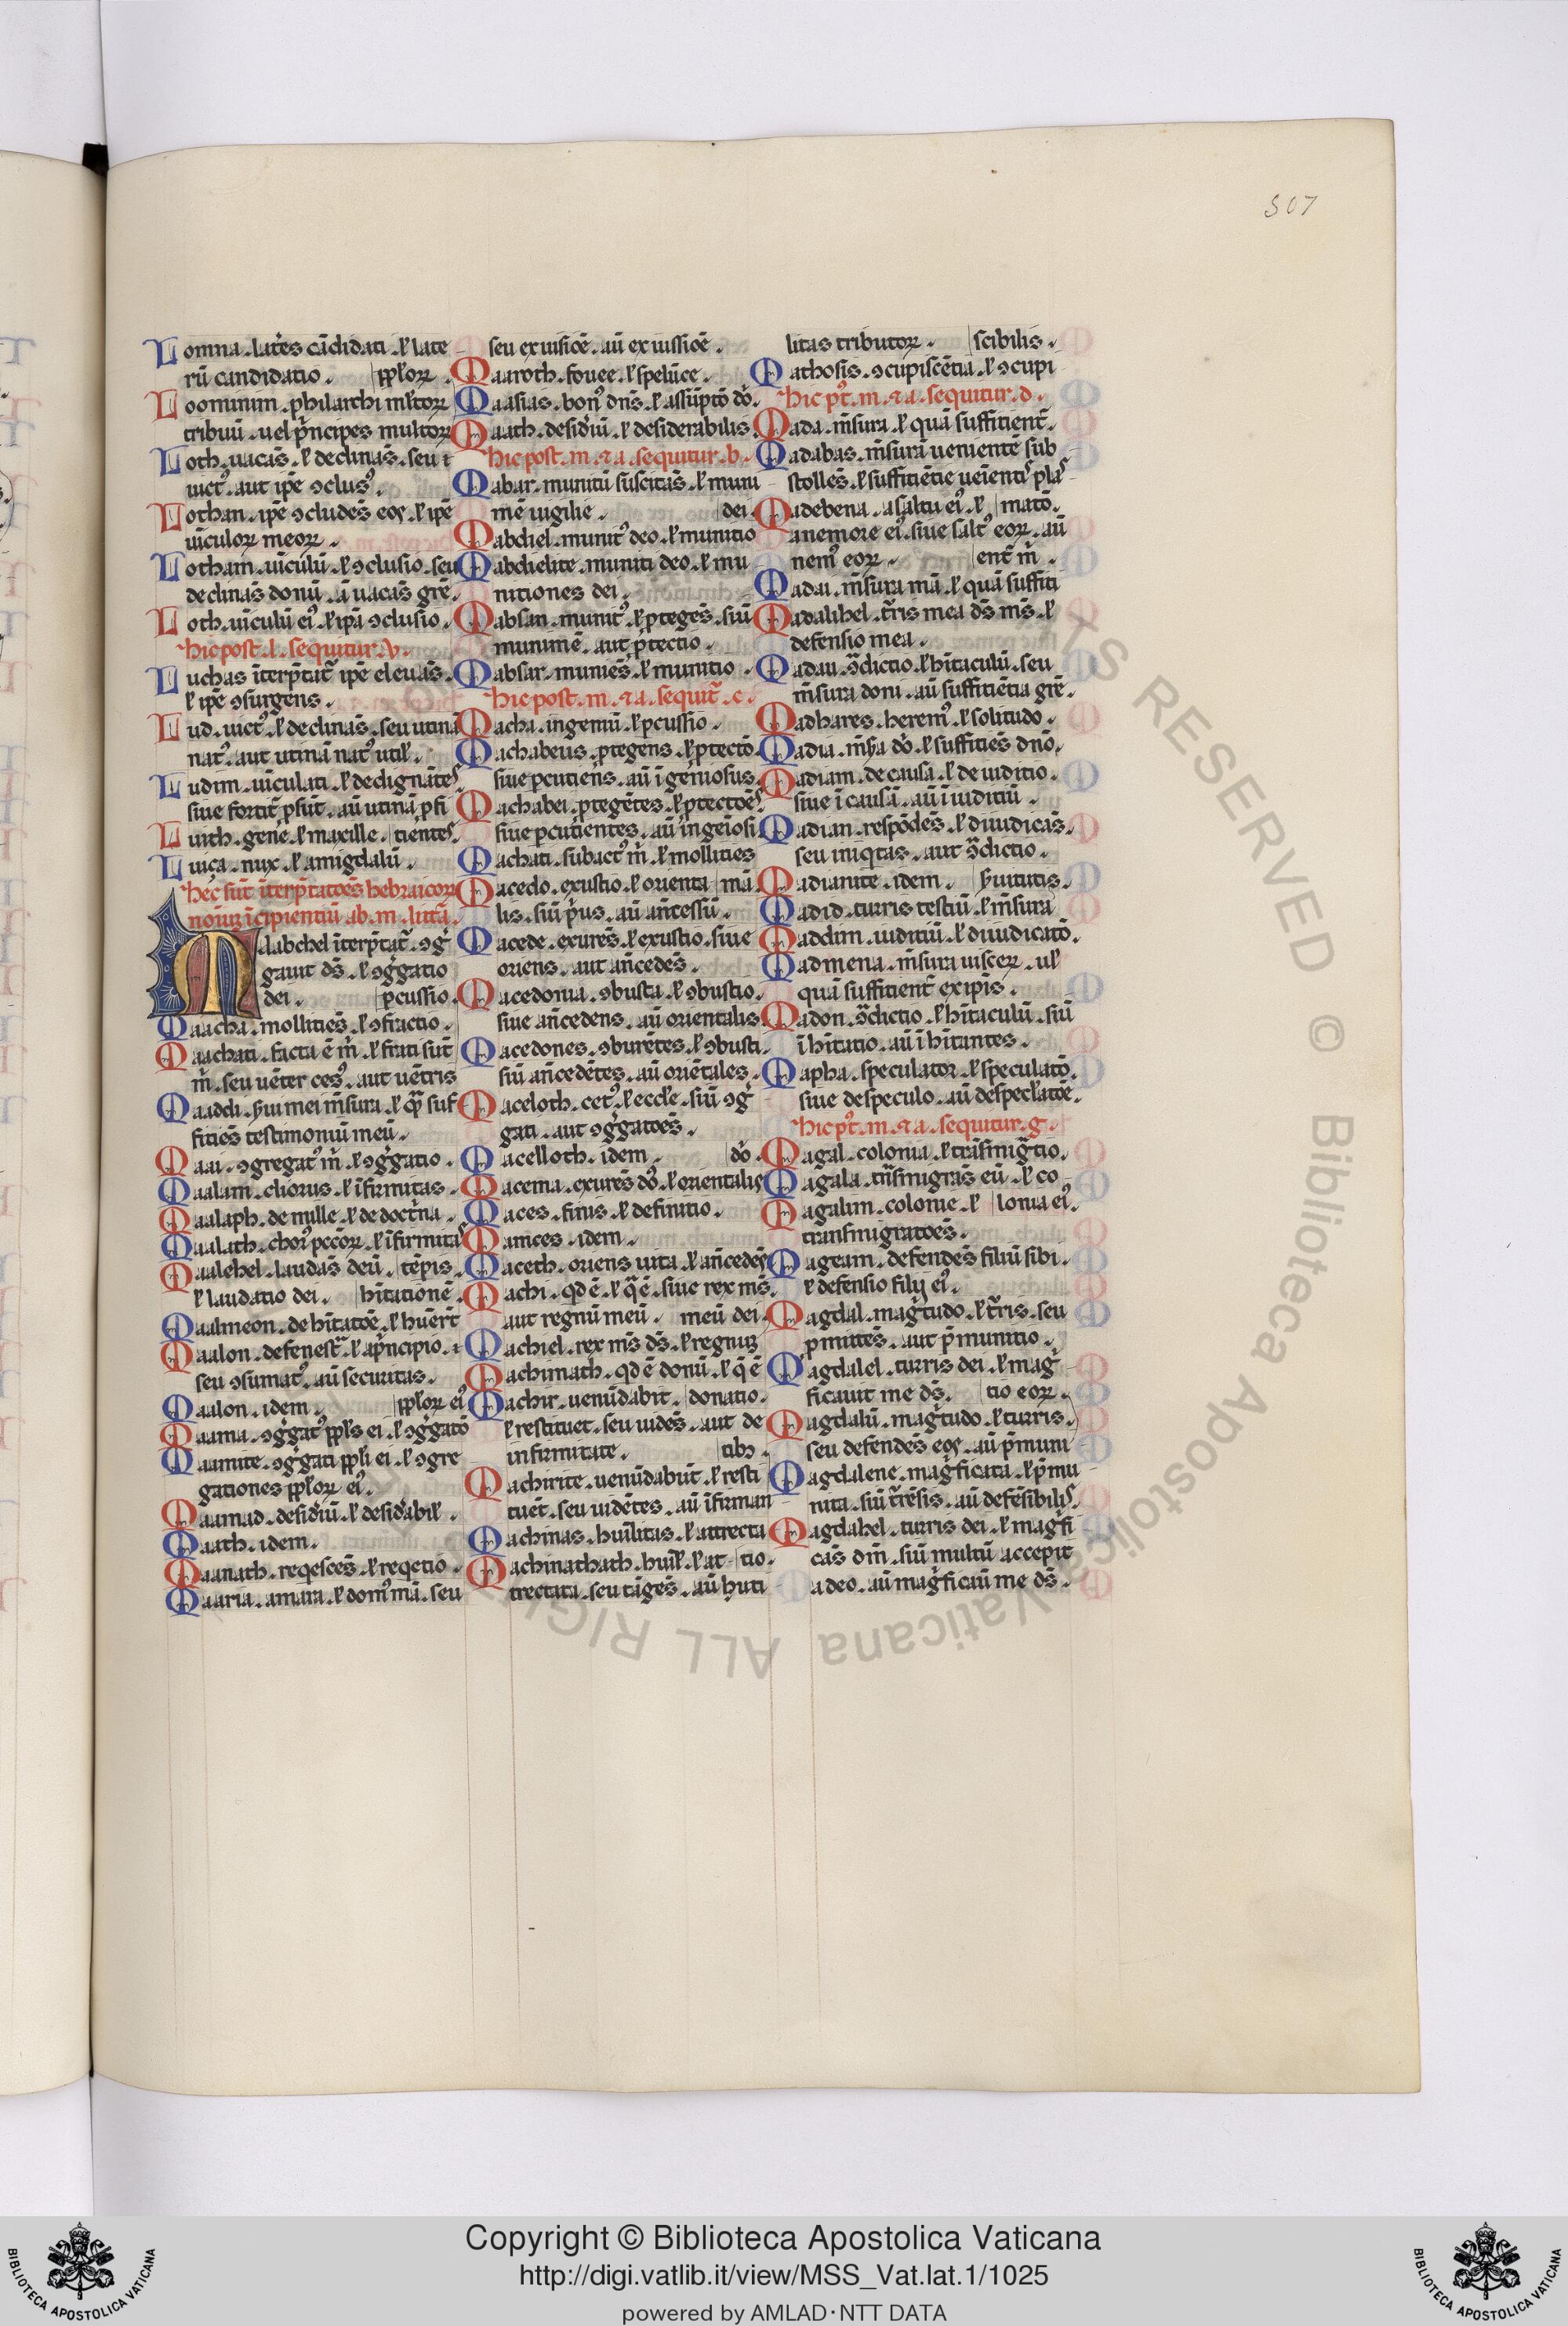 307
Lomna . lat̄es cādidati . ł late
rū candidatio . pplorꝝ .
Loomiuim . philarchi ml̄torꝝ
tribuū . uel pͥncipes multorꝝ
Loth . uacās . ł declinās . seu i
iuctꝰ . aut ip̄e ꝯclusꝰ .
Lothan . ip̄e ꝯcludēs eos . ł ip̄e
uīculorꝝ meorꝝ .
Lotham . uīculū . ł ꝯclusio . seu
declinās donū . a uacās gr̄e .
Loth . uīculū eiꝰ . ł ip̄a ꝯclusio .
hic post . l . sequitur . v .
Luchas īterp̄tat᷑ ip̄e eleuās .
ł ip̄e ꝯsurgens .
Lud . iuctꝰ . ł declinās . seu utinā
natꝰ . aut utinā natꝰ util̄ .
Ludim . uīculati . ł dedignātes
siue fortit᷑ ꝓsūt . au̅ utinā ꝓfi
Luith . gene . ł maxille . cientes .
Luiça . nux . ł amigdalū .
hec sūt īterp̄tatōēs hebraicorꝝ
noı̅uꝫ īcipientiū ab . m . litt̄a .
Maabchel īterp̄tat᷑ . ꝯgͥ
gauit ds̄ . ł ꝯgͥgatio
dei . ꝑcussio .
Maacha . mollitiēs . ł ꝯfractio .
Maachati . facta ē m̄ . ł fr̄ati sūt
m̄ . seu uēter cesꝰ . aut uētris
Maaddi . ẜuı mei m̄sura . ł qͣ suf
fitiēs testimoniū meū .
Maai . ꝯgregatꝰ m̄ . ł ꝯgͥgatio .
Maalam . chorus . ł īfirmitas .
Maalaph . de mille . ł de doctͥna .
Maalath . chorꝰ pccōrꝝ . ł īfirmitas
Maalehel . laudās deū . tēpis .
ł laudatio dei . hītationē .
Maalmeon . de hītatōē . ł hūerīt
Maalon . de fenestͣ . ł a pͥncipio . i
seu ꝯsumatꝰ . au̅ securitas .
Maalon . idem . pplorꝝ eiꝰ
Maama . ꝯgͥgatꝰ ppl̄s ei . ł ꝯgͥgatō
Maamite . ꝯgͥgati ppl̄i ei . ł ꝯgre
gationes pplorꝝ eiꝰ .
Maamad . desidͥiū . ł desidͥabil̄ .
Maath . idem .
Maanath . reqͥescēs . ł reqͥetio .
Maaria . amara . ł domꝰ mā . seu
seu ex uisiōē . au̅ ex iussiōē .
Maaroth . fouee . ł spelūce .
Maasias . bonꝰ dn̄s . ł assūptō dō .
Maath . desidͥiū . ł desiderabilis .
hic post . m . ⁊ a . sequitur . b .
Mabar . munitū suscitās . ł muni
mē uigilie . dei .
Mabdiel . munitꝰ deo . ł munitio
Mabdielite . muniti deo . ł mu
nitiones dei .
Mabsan . munitꝰ . ł ꝓtegēs . siū
munimē . aut ꝓtectio .
Mabsar . muniēs . ł munitio .
hic post . m . ⁊ a . sequit᷑ . c .
Macha . ingeniū . ł ꝑcussio .
Machabeus . ꝓtegens . ł ꝓtectō .
siue ꝑcutiēns . au̅ īgēniosus .
Machabei . ꝓtegētes . ł ꝓtectōēs
siue ꝑcutientes . au̅ ingēiosi
Machati . subactꝰ m̄ . ł mollities
Macedo . exustio . ł orienta mā .
lis . siū pͥus . au̅ an̄cessiū .
Macede . exurēs . ł exustio . siue
oriens . aut an̄cedēs .
Macedonia . ꝯbusta . ł ꝯbustio .
siue an̄cedens . au̅ orientalis
Macedones . ꝯburētes . ł ꝯbusti .
siū an̄cedētes . au̅ oriētales .
Maceloth . cetꝰ . ł eccl̄e . siū ꝯgͥ
gati . aut ꝯgͥgatōēs .
Macelloth . idem . dō .
Macema . exurēs dō . ł orientalis
Maces . finis . ł definitio .
Mamces . idem .
Maceth . oriens uita . ł an̄cedēs
Machi . qd ē . ł qͣ ē . siue rex ms̄ .
aut regnū meū . meū dei .
Machiel . rex ms̄ ds̄ . ł regnuꝫ
Machimath . qd ē donū . ł qͥ ē
Machir . uenūdabit . donatio .
ł restituet . seu uidēs . aut de
infirmitate . tibꝫ .
Machirite . uenūdabūt . ł resti
tuēt . seu uidētes . au̅ īfirman
Machinas . huīlitas . ł attrecta
Machinathath . huīl̄ . ł at tio .
trectata . seu tāgēs . au̅ huti
litas tributorꝝ . scibilis .
Mathosis . ꝯcupiscētia . ł ꝯcupi
hic pꝰt . m . ⁊ a . sequitur . d .
Mada . m̄sura . ł quā suffitient᷑ .
Madabas . m̄surā uenientē sub
stollēs . ł suffitiētie ueiēntis pla
Madebena . a saltu eiꝰ . ł matō .
a nemore eiꝰ . siue saltꝰ eorꝝ . au̅
nemꝰ eorꝝ . ent᷑ m̄ .
Madai . m̄sura mā . ł quā suffiti
Madalihel . t᷑ris mea ds̄ ms̄ . ł
defensio mea .
Madau . ꝯͣdictio . ł hītaculū . seu
m̄sura doni . au̅ suffitiētia gr̄e .
Madhares . heremꝰ . ł solitudo .
Madia . m̄sͣa dō . ł suffitiēs dn̄o .
Madiam . de causa . ł de iuditio .
siue ī causā . au̅ ī iuditiū .
Madian . respōdēs . ł diiudicās .
seu iniqͥtas . aut ꝯͣdictio .
Madianite . idem . ẜuitutis .
Madid . turris testiū . ł m̄sura
Maddim . iuditiū . ł diiudicatō .
Madmena . m̄sura uiscerꝝ . ul̄
quā suffitient᷑ ex ip̄is .
Madon . ꝯͣdictio . ł hītaculū . siū
ī hītatio . au̅ ī hītantes .
Mapha . speculator . ł speculatō .
siue de speculo . au̅ de specl̄atōē .
hic pꝰt . m . ⁊ a . sequitur . g .
Magal . colonia . ł trāsmigͣtio .
Magala . tn̄smigrās eū . ł co
Magalim . colonie . ł lonia eiꝰ .
transmigratōēs .
Mageam . defendēs filiū sibi .
ł defensio filij eiꝰ .
Magdal . magͥtudo . ł t᷑ris . seu
ꝑmittēs . aut pͥmunitio .
Magdalel . turris dei . ł magͥ
ficauit me ds̄ . tio eorꝝ .
Magdalū . magͥtudo . ł turris .
seu defendēs eos . au̅ pͥmuni
Magdalene . magͥficata . ł pͥmu
nita . siū t᷑rēsis . au̅ defēsibilis .
Magdahel . turris dei . ł magͥfi
cās dm̄ . siū multū accepit
a deo . au̅ magͥficauͥ me ds̄ .
ALL RIGHTS RESERVED © Biblioteca Apostolica Vaticana
BIBLIOTECA APOSTOLICA VATICANA
Copyright © Biblioteca Apostolica Vaticana
http://digi.vatlib.it/view/MSS_Vat.lat.1/1025
powered by AMLAD·NTT DATA
BIBLIOTECA APOSTOLICA VATICANA